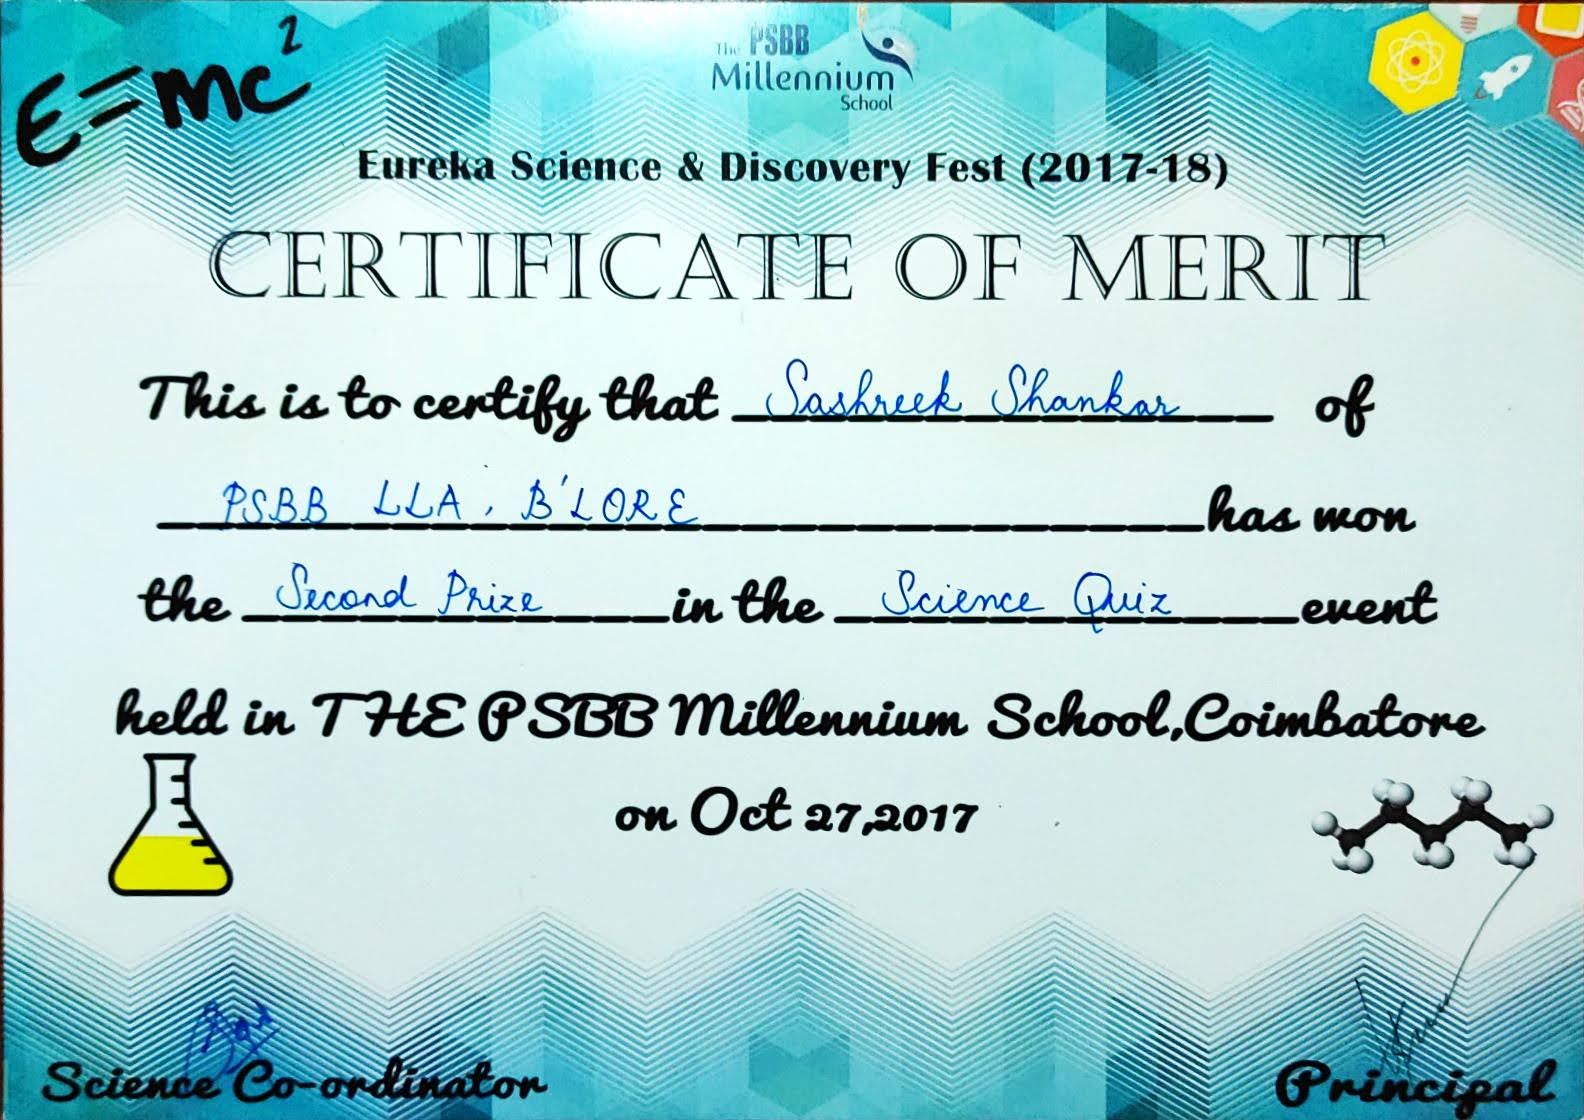 E=mc²
The PSBB
Millennium
School
Eureka Science & Discovery Fest (2017-18)
CERTIFICATE OF MERIT
This is to certify that Sashreek Shankar of
PSBB LLA, B'LORE has won
the Second Prize in the Science Quiz event
held in THE PSBB Millennium School,Coimbatore
on Oct 27,2017
Science Co-ordinator
Principal